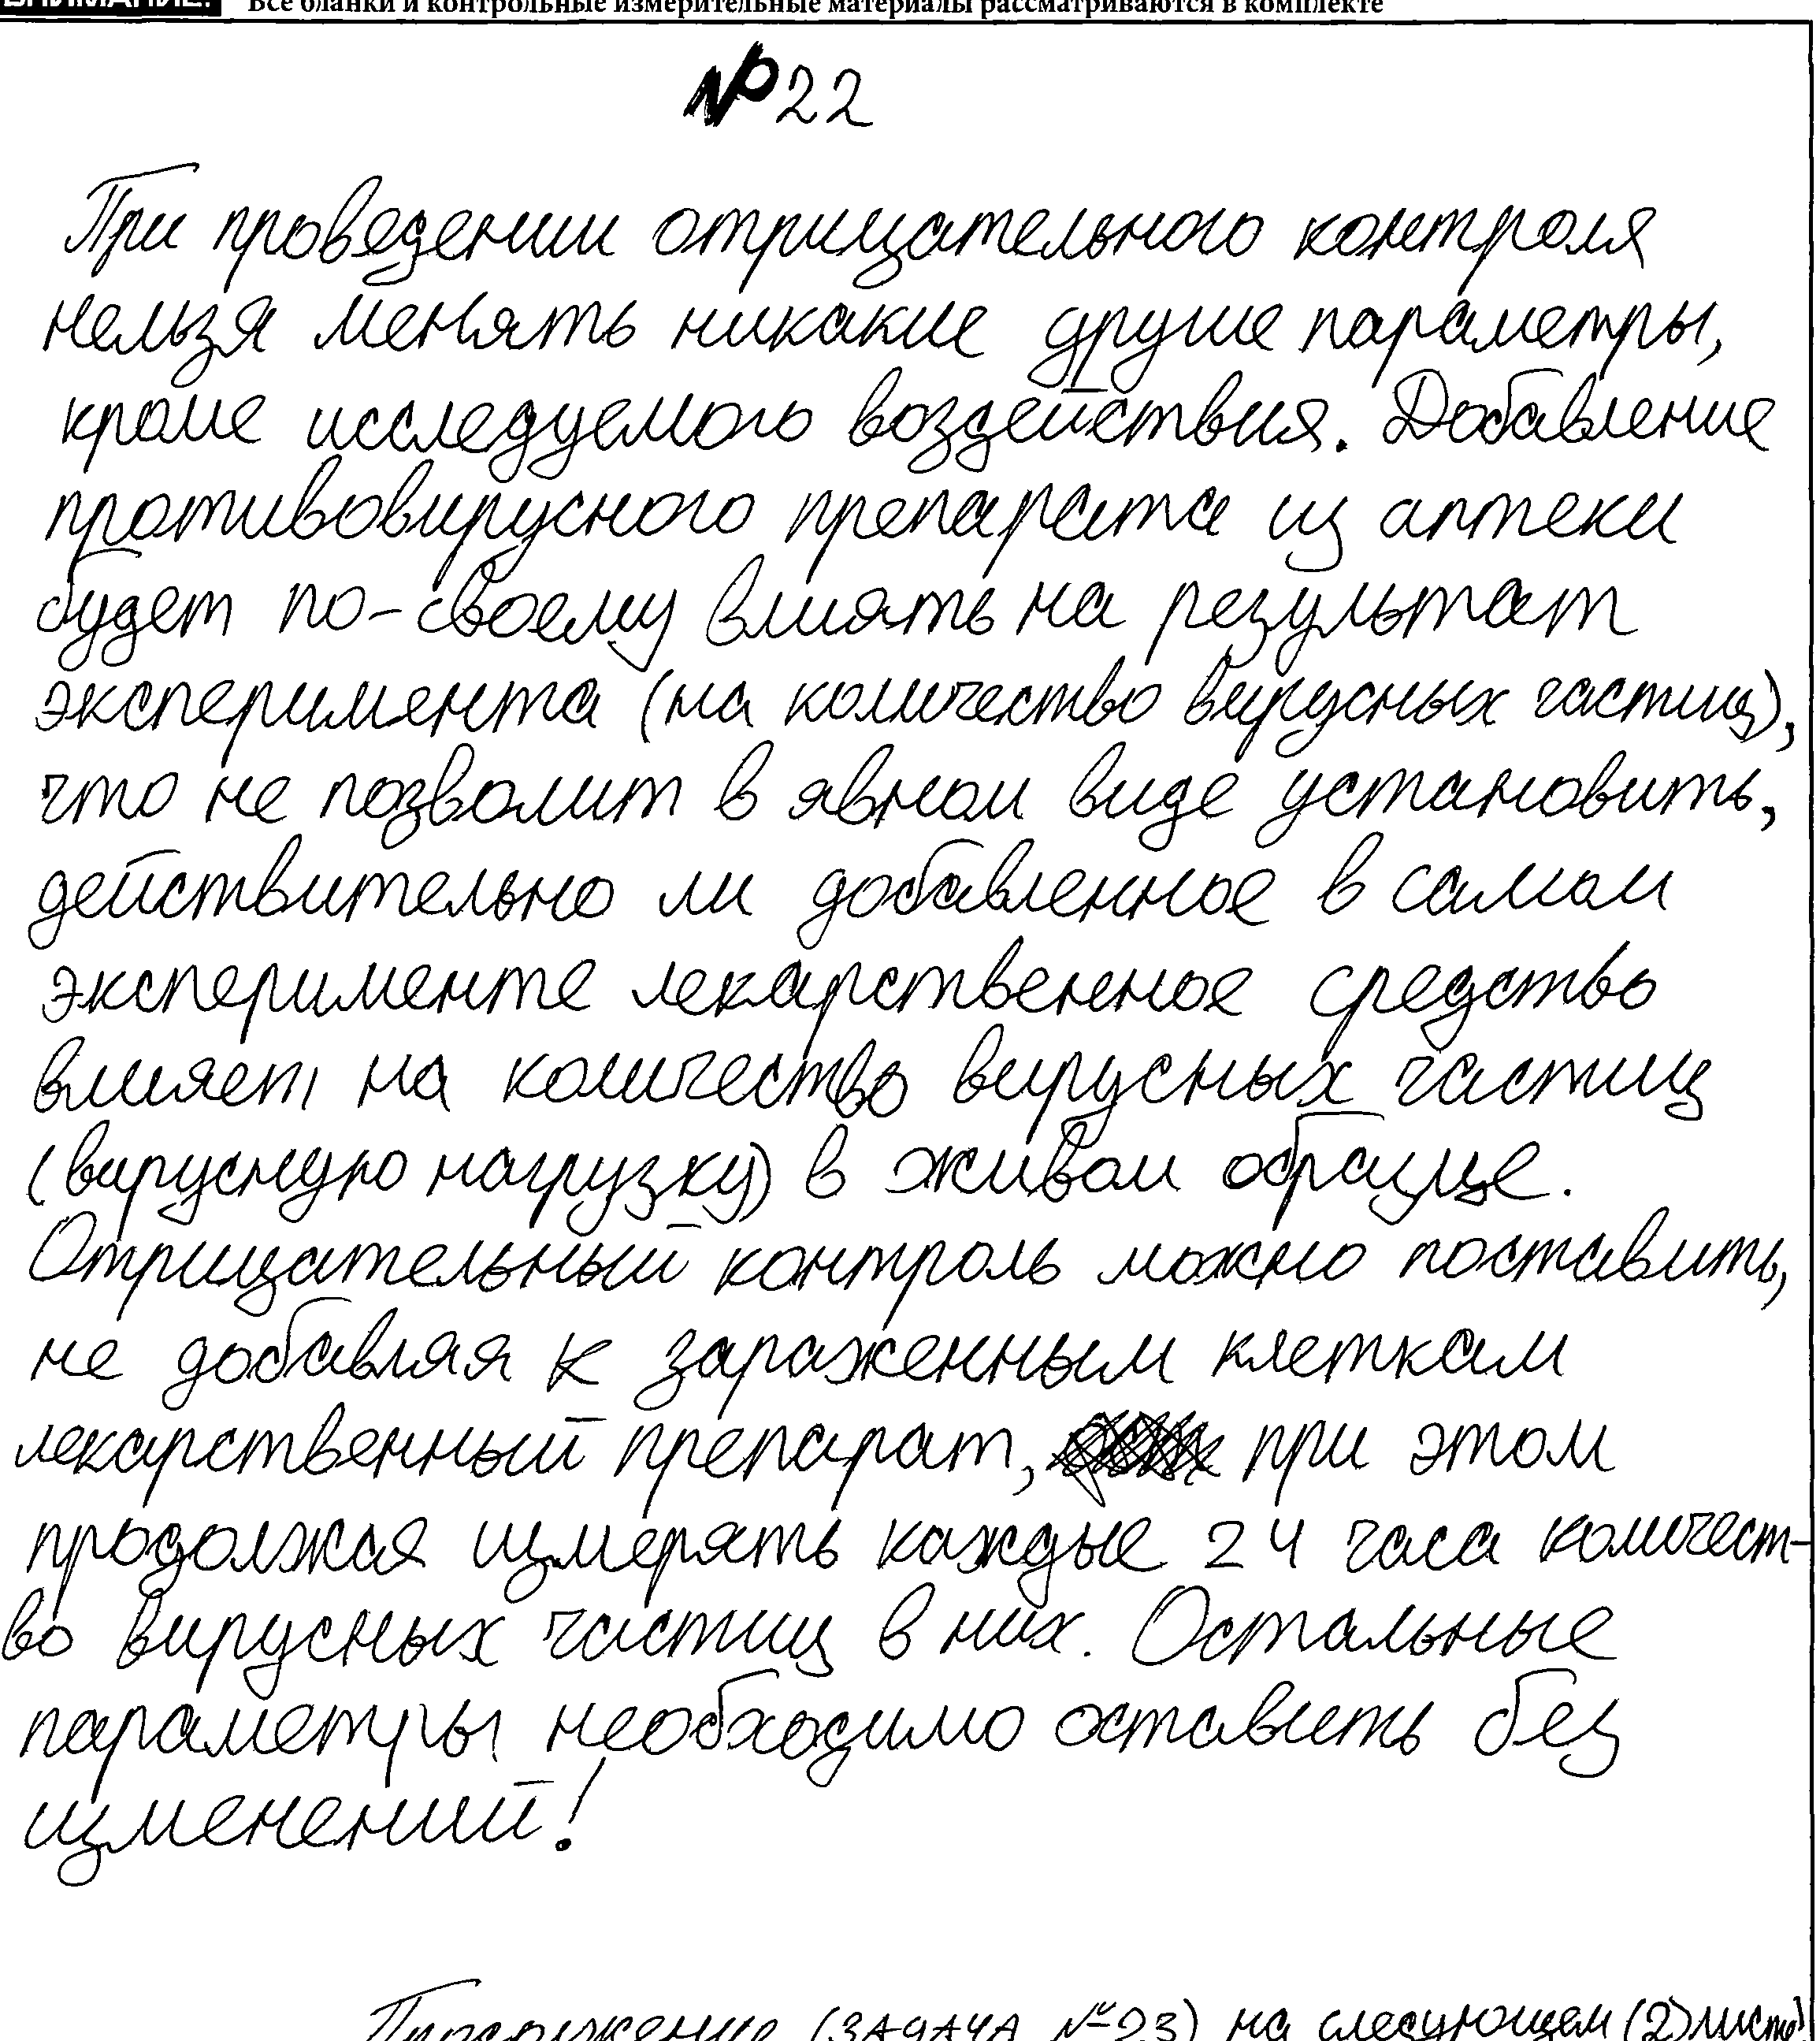 ВНИМАНИЕ! Все бланки и контрольные измерительные материалы рассматриваются в комплекте
№22
При проведении отрицательного контроля
нельзя менять никакие другие параметры,
кроме исследуемого воздействия. Добавление
противовирусного препарата из аптеки
будет по-своему влиять на результат
эксперимента (на количество вирусных частиц),
что не позволит в явном виде установить,
действительно ли добавленное в самом
эксперименте лекарственное средство
влияет на количество вирусных частиц
(вирусную нагрузку) в живом образце.
Отрицательный контроль можно поставить,
не добавляя к зараженным клеткам
лекарственный препарат, при этом
продолжая измерять каждые 24 часа количест-
во вирусных частиц в них. Остальные
параметры необходимо оставить без
изменений!
Продолжение (ЗАДАЧА №23) на следующем (2) листе)